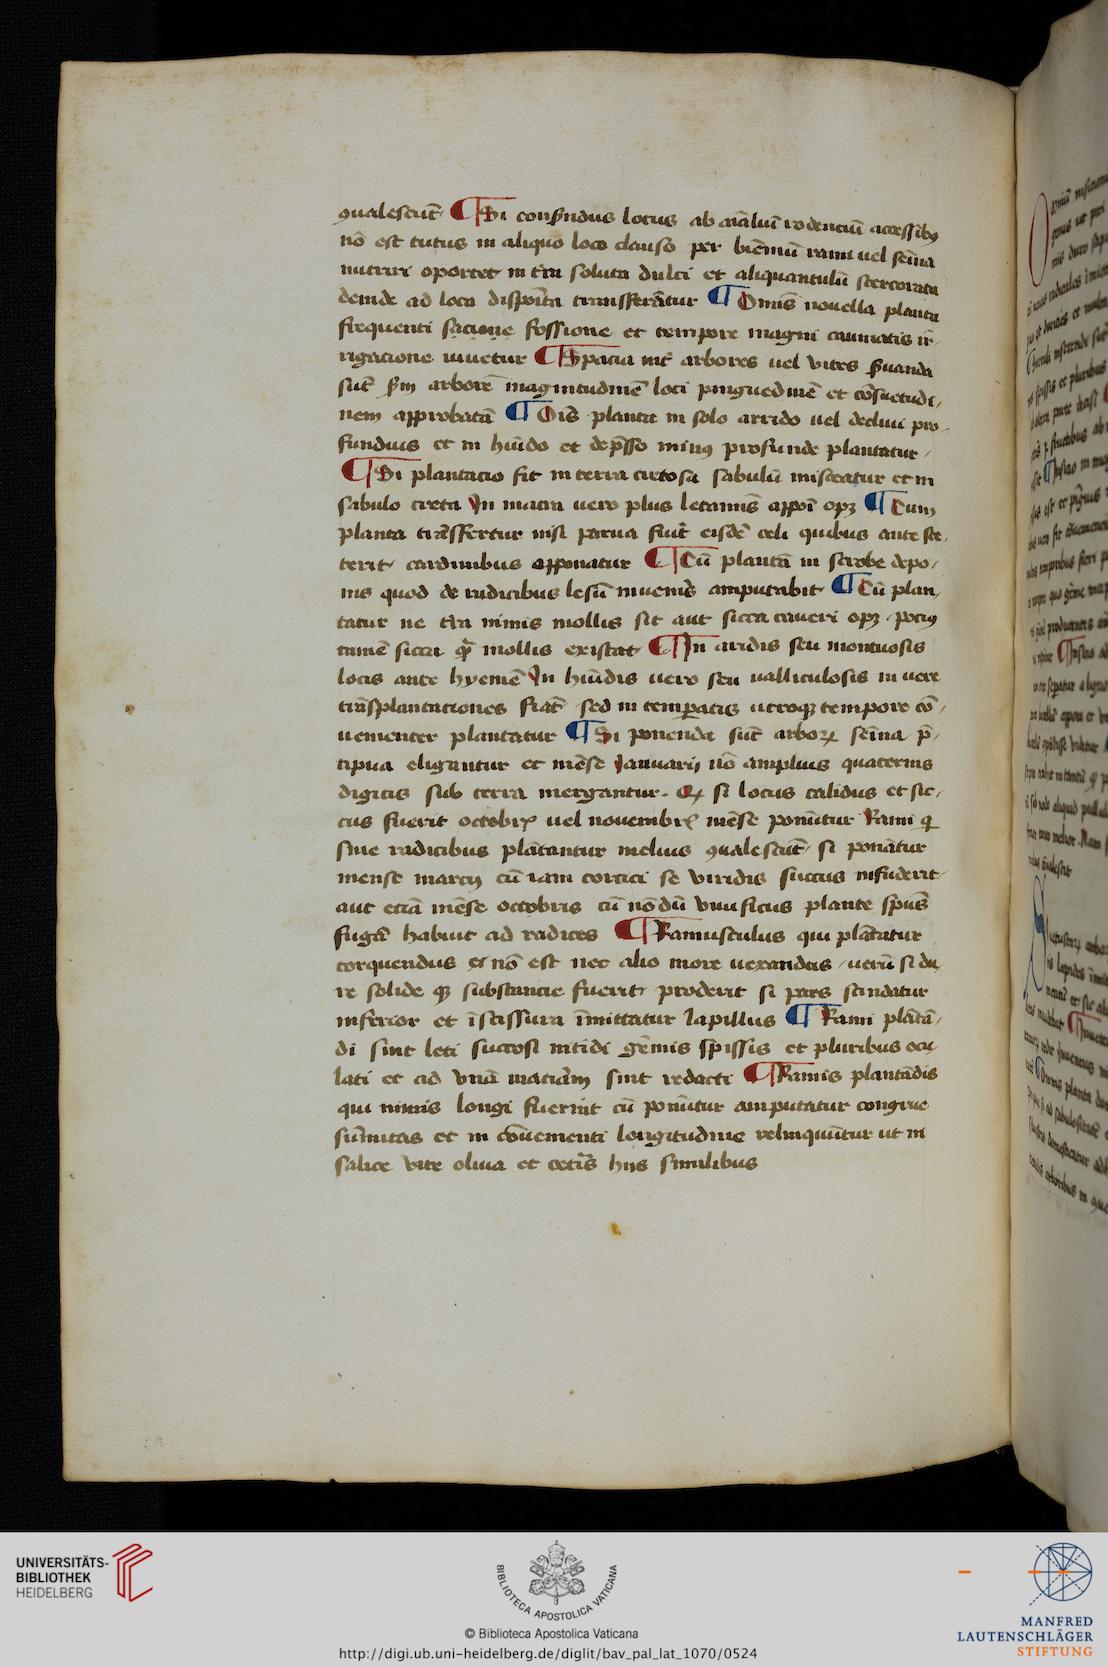 ꝯualescūt ¶ Si conſꝑndus locus ab aīaliū rodenciū accessibꝰ
nō est tutus in aliquo loco clauso per biēniū rami uel semīa
nutriri oportet in tr̄a soluta dulci et aliquantulū stercorata
deinde ad loca disposita transferātur ¶ Omīs nouella planta
frequenti sacione fossione et tempore magni caumatis ir
rigacione iuuetur ¶ Spacia int̄ arbores uel vites ſuanda
sūt ſm arborē magnitudinē loci pinguedinē et cōsuetudi
nem approbatā ¶ Oīs planta in solo arrido uel decliui pro
fundius et in hūido et dep̄sso minꝰ profunde plantatur
¶ Si plantacio fit in terra cretosa sabulū misceatur et in
sabulo creta In macra uero plus letaminis apponi opꝫ ¶ Cum
planta trāsfertur nisi parua fūit eisdē celi quibus ante ste
terit cardinibus apponatur ¶ Cū plantā in scrobe depo
nis quod de radicibus lesū inuenis amputabit ¶ Cū plan
tatur ne tr̄a nimis mollis sit aut sicca caueri opꝫ pociꝰ
tamē sicca qͣ mollis existat ¶ In aridis seu montuosis
locis ante hyemē In hūidis uero seu valliculosis in vere
trāsplantationes fiāt sed in temꝑatis utroqꝫ tempore cō
uenienter plantatur ¶ Si ponenda sūt arboꝝ semīa p̄
cipua eligantur et mēse Januarij nō amplius quaternis
digitis sub terra mergantur Qꝫ si locus calidus et sic
cus fuerit octobrꝭ uel novembrꝭ mēse ponūtur Rami qͥ
sine radicibus plātantur melius ꝯualescūt si ponātur
mense marcij cū iam cortici se viridis succus infuderit
aut etiā mēse octobris cū nōdū viuificus plante spūs
fugā habuit ad radices ¶ Ramusculus qui plātatur
torquendus nō est nec alio more uexandus uerū si du
re solide qꝫ substancie fuerit proderit si pars scindatur
inferior et ī scissura īmittatur lapillus ¶ Rami plātā
di sint leti succosi nitidi gēmis spissis et pluribus ocu
lati et ad vnā matiām sint redacti ¶ Ramis plantādis
qui nimis longi fuerint cū ponūtur amputatur congrue
sūmitas et in cōuenienti longitudine relinquūtur ut in
salice vite oliua et cetīs hiis similibus
UNIVERSITÄTS-
BIBLIOTHEK
HEIDELBERG
BIBLIOTECA APOSTOLICA VATICANA
© Biblioteca Apostolica Vaticana
http://digi.ub.uni-heidelberg.de/diglit/bav_pal_lat_1070/0524
MANFRED
LAUTENSCHLÄGER
STIFTUNG